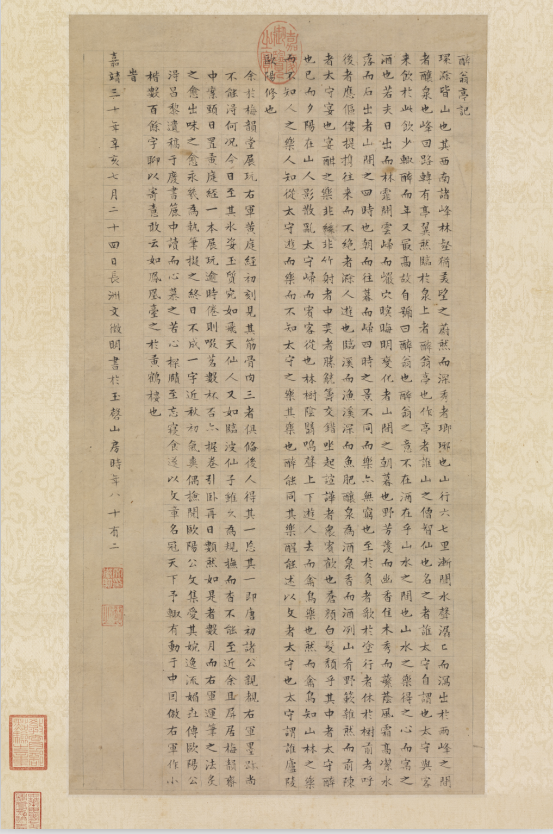 醉翁亭記
環滁皆山也其西南諸峰林壑尤美望之蔚然而深秀者瑯琊也山行六七里漸聞水聲潺〻而瀉出於兩峰之間
者釀泉也峰回路轉有亭翼然臨於泉上者醉翁亭也作亭者誰山之僧智仙也名之者誰太守自謂也太守與客
來飲於此飲少輒醉而年又最高故自號曰醉翁也醉翁之意不在酒在乎山水之間也山水之樂得之心而寓之
酒也若夫日出而林霏開雲歸而巖穴暝晦明變化者山間之朝暮也野芳發而幽香佳木秀而繁蔭風霜高潔水
落而石出者山間之四時也朝而往暮而歸四時之景不同而樂亦無窮也至於負者歌於塗行者休於樹前者呼
後者應傴僂提攜往來而不絕者滁人遊也臨溪而漁溪深而魚肥釀泉為酒泉香而酒洌山肴野蔌雜然而前陳
者太守宴也宴酣之樂非絲非竹射者中奕者勝觥籌交錯坐起諠譁者衆賓歡也蒼顏白髮頹乎其中者太守醉
也已而夕陽在山人影散亂太守歸而賓客從也林樹陰翳鳴聲上下遊人去而禽鳥樂也然而禽鳥知山林之樂
而不知人之樂人知從太守遊而樂而不知太守之樂其樂也醉能同其樂醒能述以文者太守也太守謂誰廬陵
歐陽修也
余於梅韻堂展玩右軍黃庭經初刻見其筋骨肉三者俱備後人得其一忘其一即唐初諸公親覩右軍墨跡尚
不能得何況今日至其水姿玉質宛如飛天仙人又如臨波仙子雖久為規撫而杳不能至近余且屏居梅韻齋
中案頭日置黃庭經一本展玩逾時倦則啜茗數杯否亦握卷引臥再日覩然如是者數月而右軍運筆之法炙
之愈出味之愈永載為執筆擬之終日不成一字近秋初氣爽偶撫閱歐陽公文集愛其婉逸流媚世傳歐陽公
得昌黎遺稿于廢書簏中讀而心慕之苦心探賾至忘寢食遂以文章名冠天下予輒有動于中因倣右軍作小
楷數百餘字聊以寄意敢云如鳳凰臺之於黃鶴樓也
皆
嘉靖三十年辛亥七月二十四日長洲文徵明書於玉磬山房時年八十有二